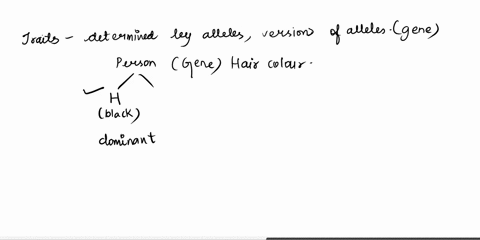 Traits - determined by alleles, version of alleles. (gene)
Person (Gene) Hair colour.
H
(black)
dominant